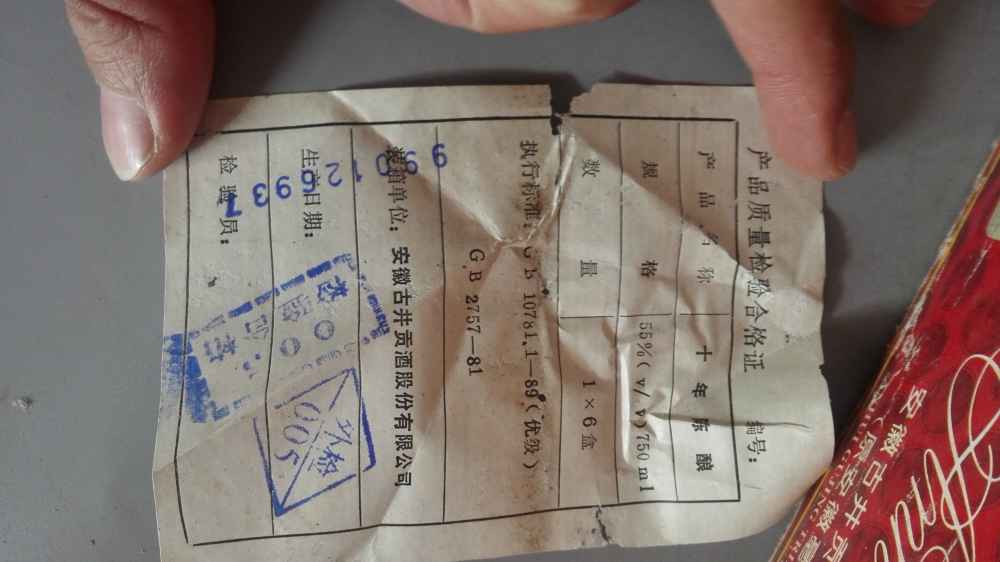 产品质量检验合格证 编号:
产品名称 十年陈酿
规格 55%(v/v)750ml
数量 1×6盒
执行标准: GB 10781.1—89(优级)
GB 2757—81
装箱单位: 安徽古井贡酒股份有限公司
生产日期:
检验员:
005
安徽古井贡